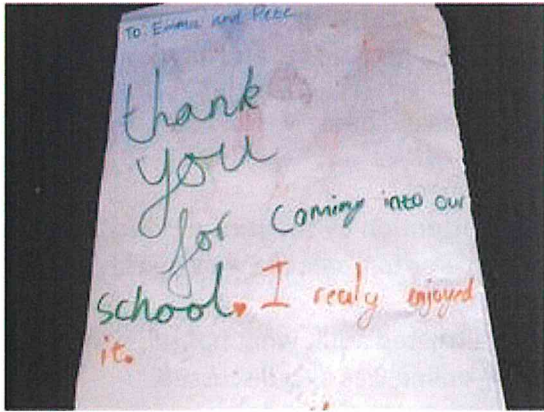 To Emma and Pete
thank
you
for coming into our
school. I realy enjoyed
it.